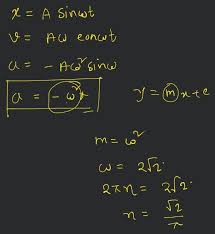 x = A sinωt
v = Aω cosωt
a = - Aω² sinω
a = - ω² x
y = mx + c
m = ω²
ω = 2√2
2πn = 2√2
n = √2/π